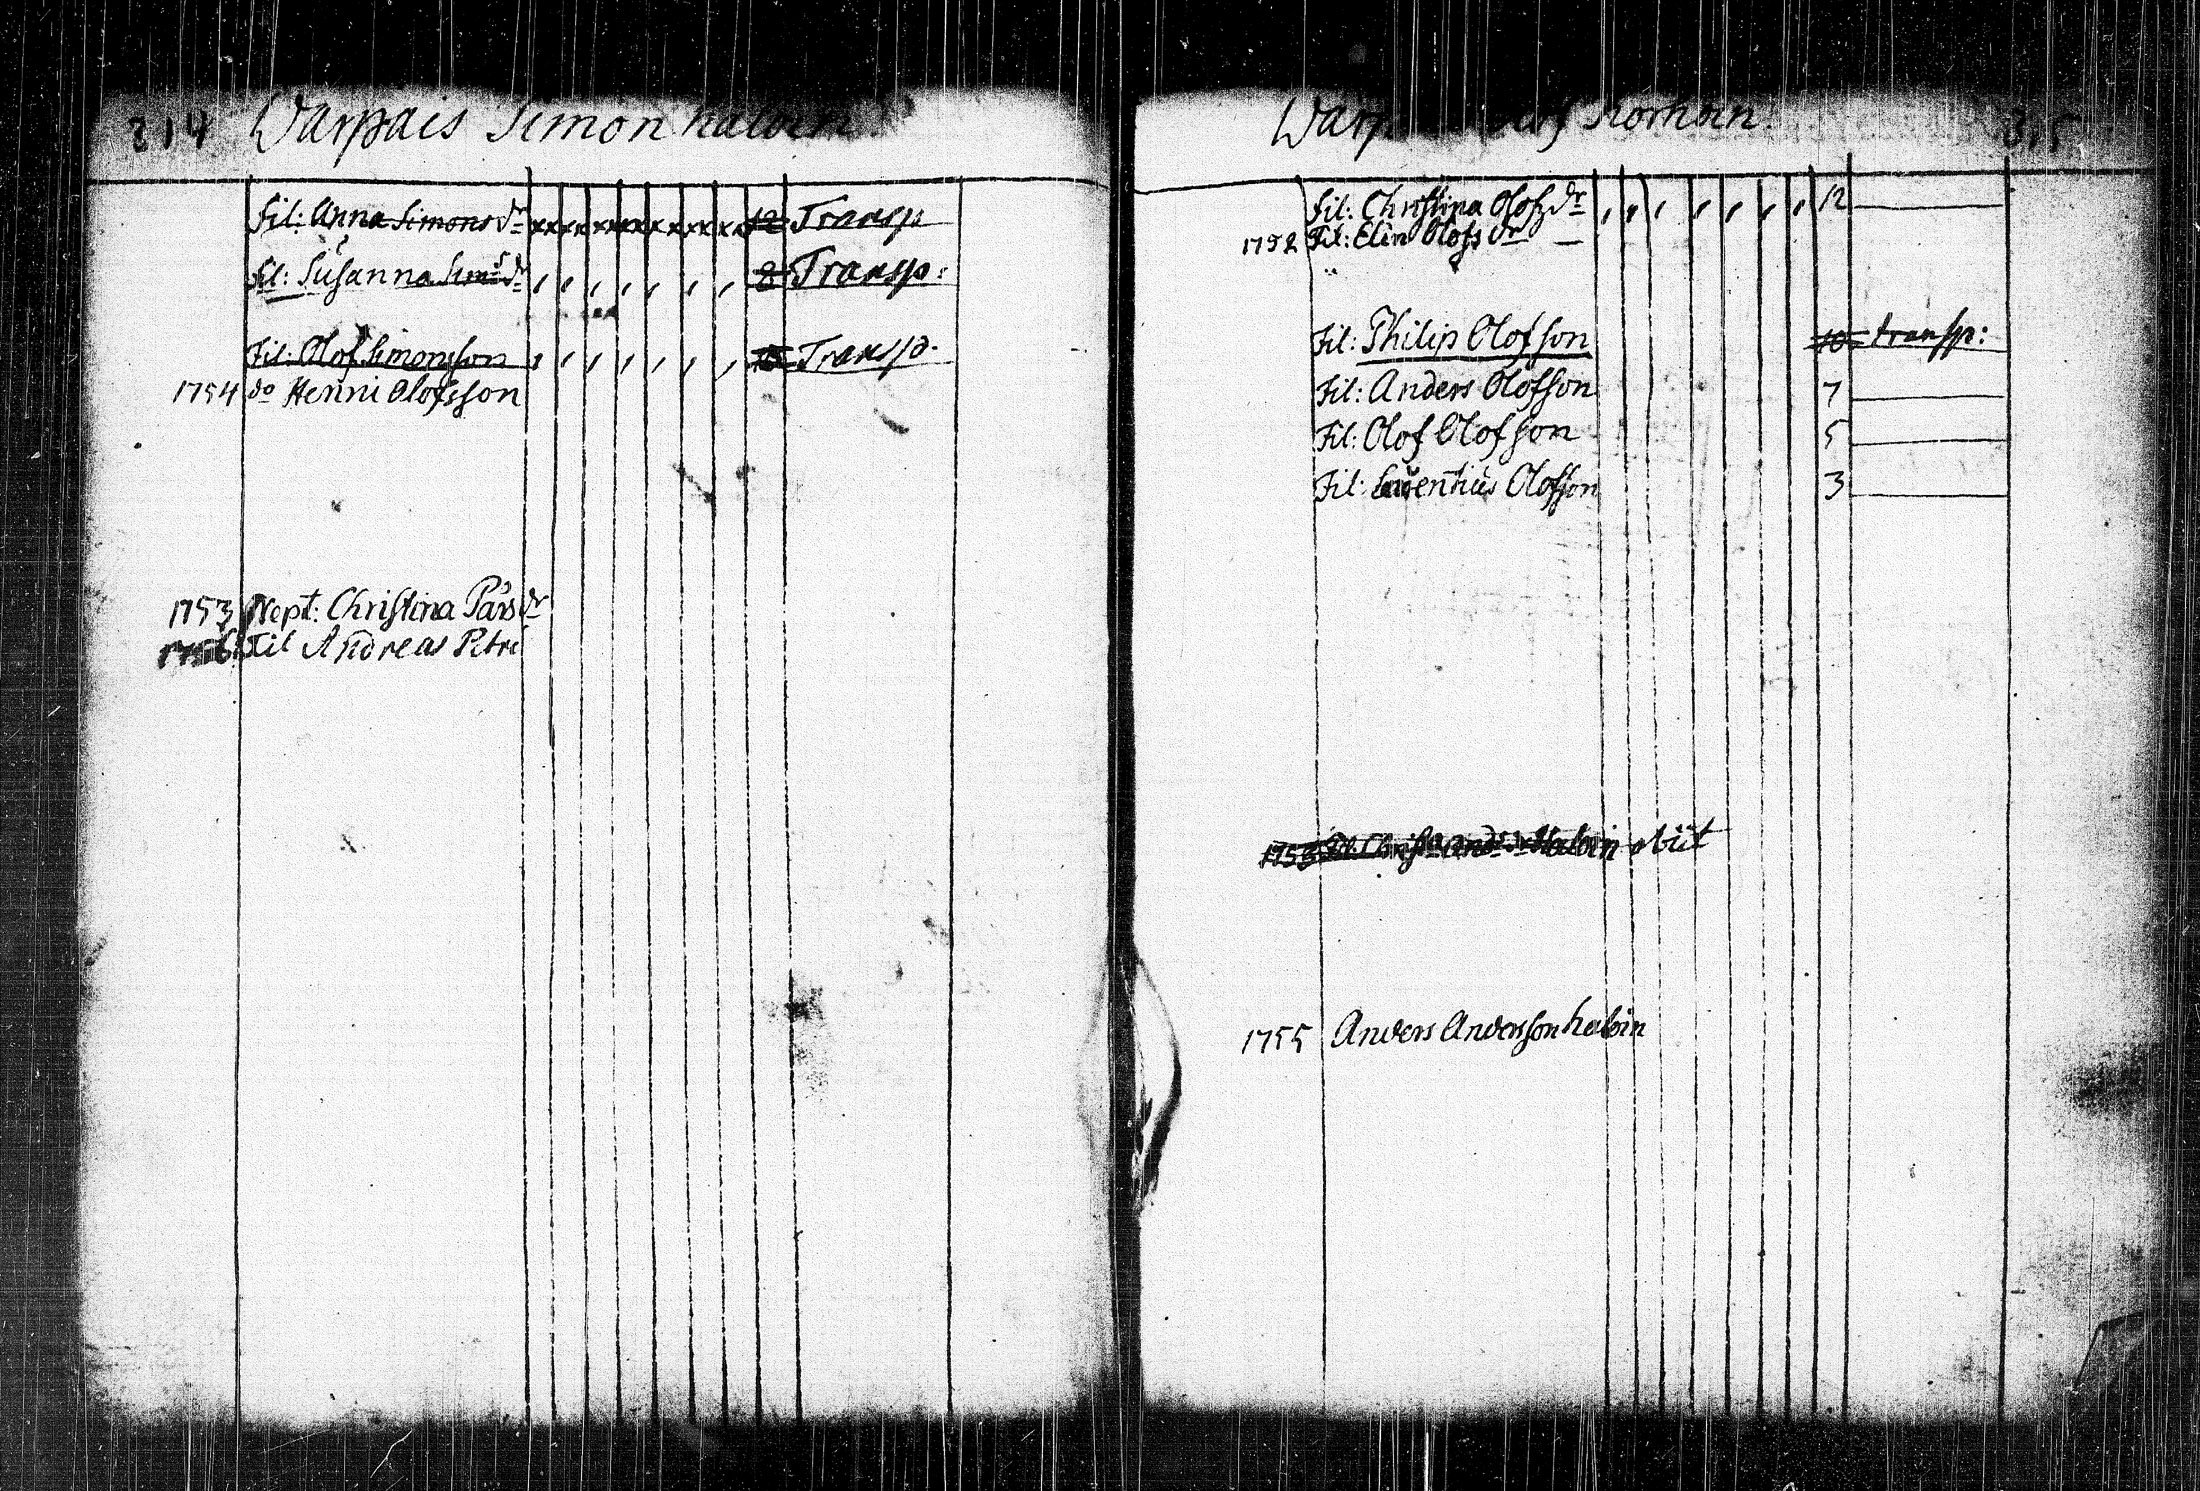 214 Warpais Simon halvin
Fil: Anna Simons dr 12 Transp
Fil: Susanna Sims dr 8 Transp:
Fil: Olof Simonsson Transp.
1754 do Henric Olofsson
1753 Nept: Christina Pärs dr
1756 Fil Andreas Petri
Olof Korhoin 215
Fil: Christina Olofz dr 12
1752 Fil: Elin Olofs dr
Fil: Philip Olofson 10 transp:
Fil: Anders Olofson 7
Fil: Olof Olofson 5
Fil: Lauentius Olofson 3
1753 Halvin obiit
1755 Anders Andersson halvin